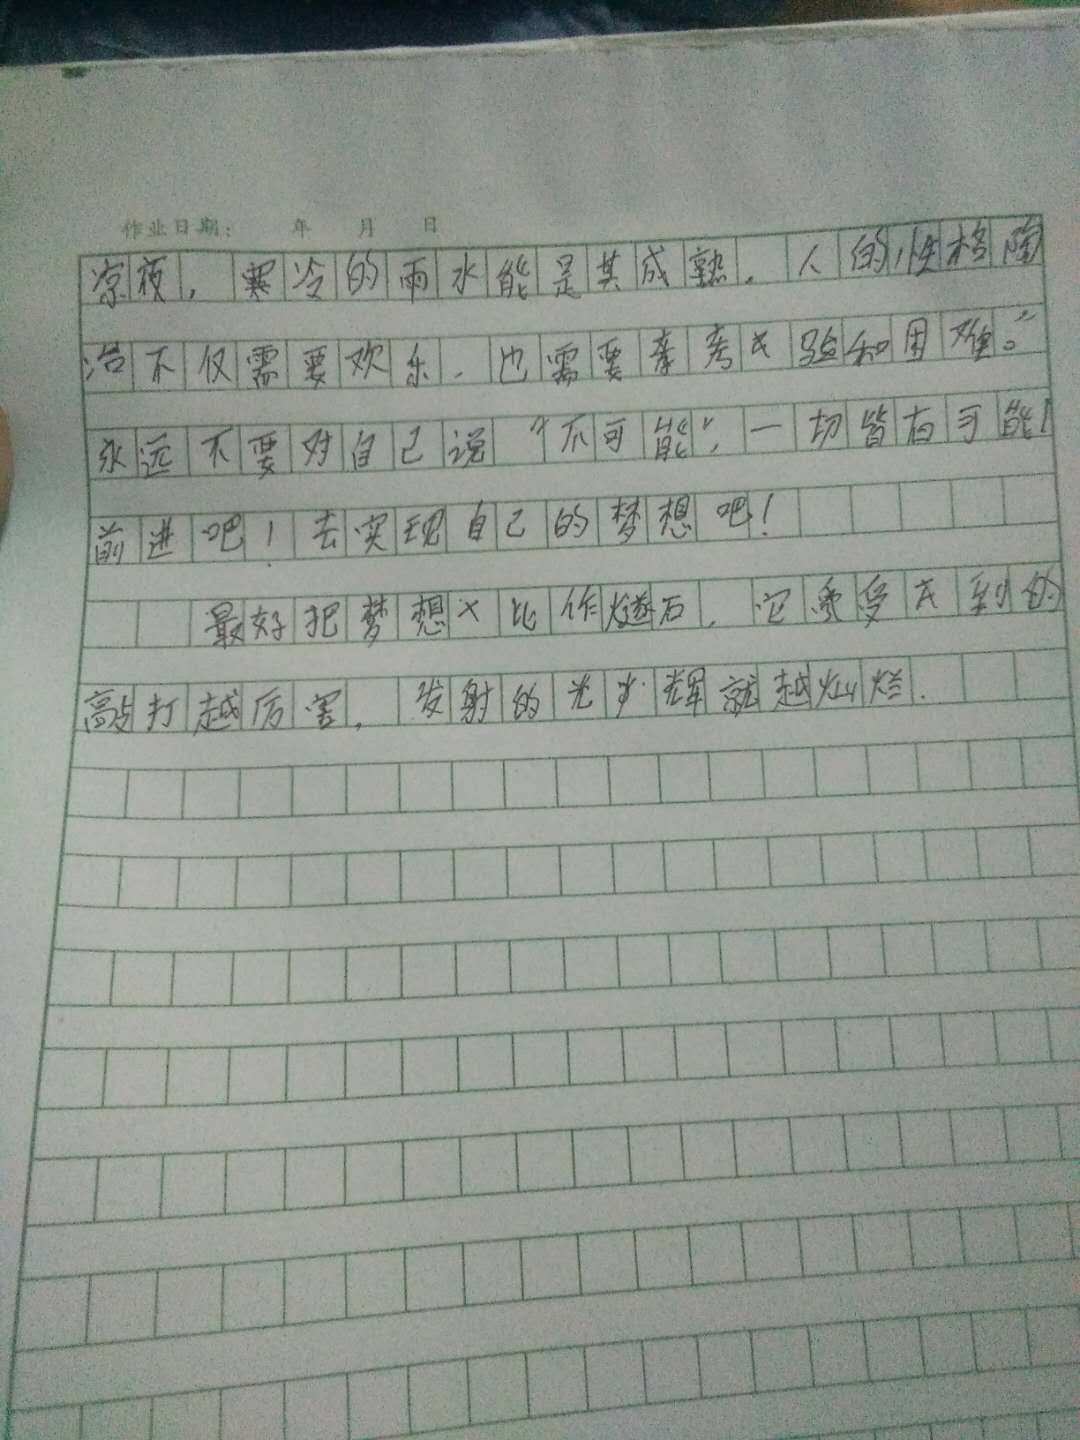 作业日期: 年 月 日
凉夜，寒冷的雨水能是其成熟．人的性格陶
冶不仅需要欢乐．也需要考验和困难。”
永远不要对自己说“不可能”，一切皆有可能！
前进吧！去实现自己的梦想吧！
最好把梦想比作燧石，它受到的
敲打越厉害，发射的光辉就越灿烂．